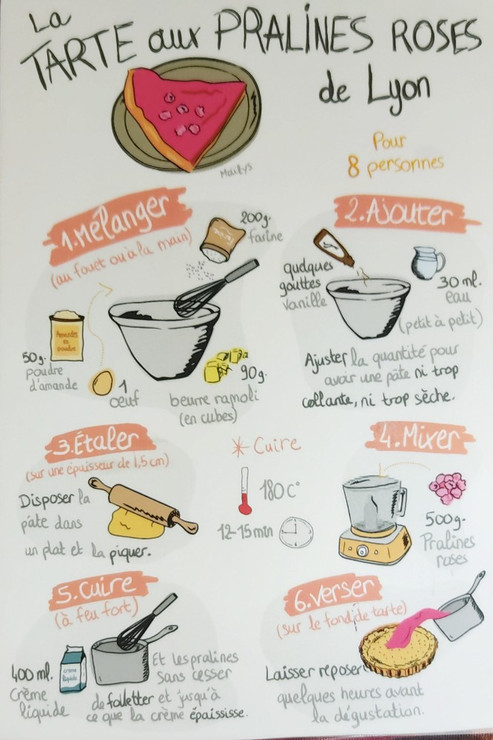 La
TARTE aux PRALINES ROSES
de Lyon
Maïlys
Pour
8 personnes
1. Mélanger
(au fouet ou à la main)
200g.
farine
50g.
poudre
d'amande
Amandes
en
poudre
1
œuf
90g.
beurre ramolli
(en cubes)
2. Ajouter
quelques
gouttes
vanille
30 ml.
eau
(petit à petit)
Ajuster la quantité pour
avoir une pâte ni trop
collante, ni trop sèche.
3. Étaler
(sur une épaisseur de 1,5 cm)
Disposer la
pâte dans
un plat et la piquer.
* Cuire
180 C°
12-15 min
4. Mixer
500g.
Pralines
roses
5. Cuire
(à feu fort)
400 ml.
Crème
liquide
crème
liquide
Et les pralines
sans cesser
de fouetter et jusqu'à
ce que la crème épaississe.
6. Verser
(sur le fond de tarte)
Laisser reposer
quelques heures avant
la dégustation.